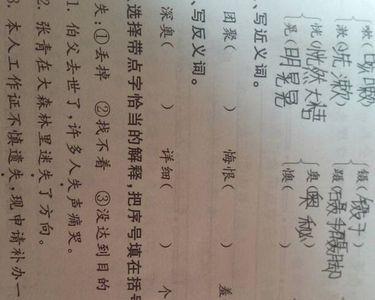 嗽(咳嗽) 镊(镊子
漱(洗漱) 蹑(蹑手蹑脚
恍(恍然大悟 奥(奥秘)
晃(明晃晃 懊(
、写近义词。
团聚( ) 悔恨( ) 羞
、写反义词。
深奥( ) 详细( ) 个
选择带点字恰当的解释,把序号填在括号
失:①丢掉 ②找不着 ③没达到目的
1. 伯父去世了,许多人失声痛哭。
2. 张青在大森林里迷失了方向。
3. 本人工作证不慎遗失,现申请补办一